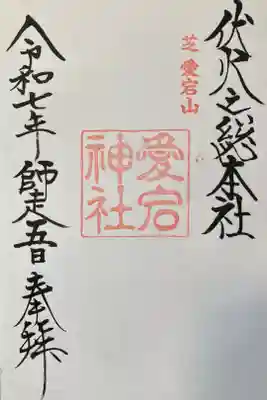 伏火之総本社
芝 愛宕山
愛宕
神社
令和七年 師走五日 奉拝